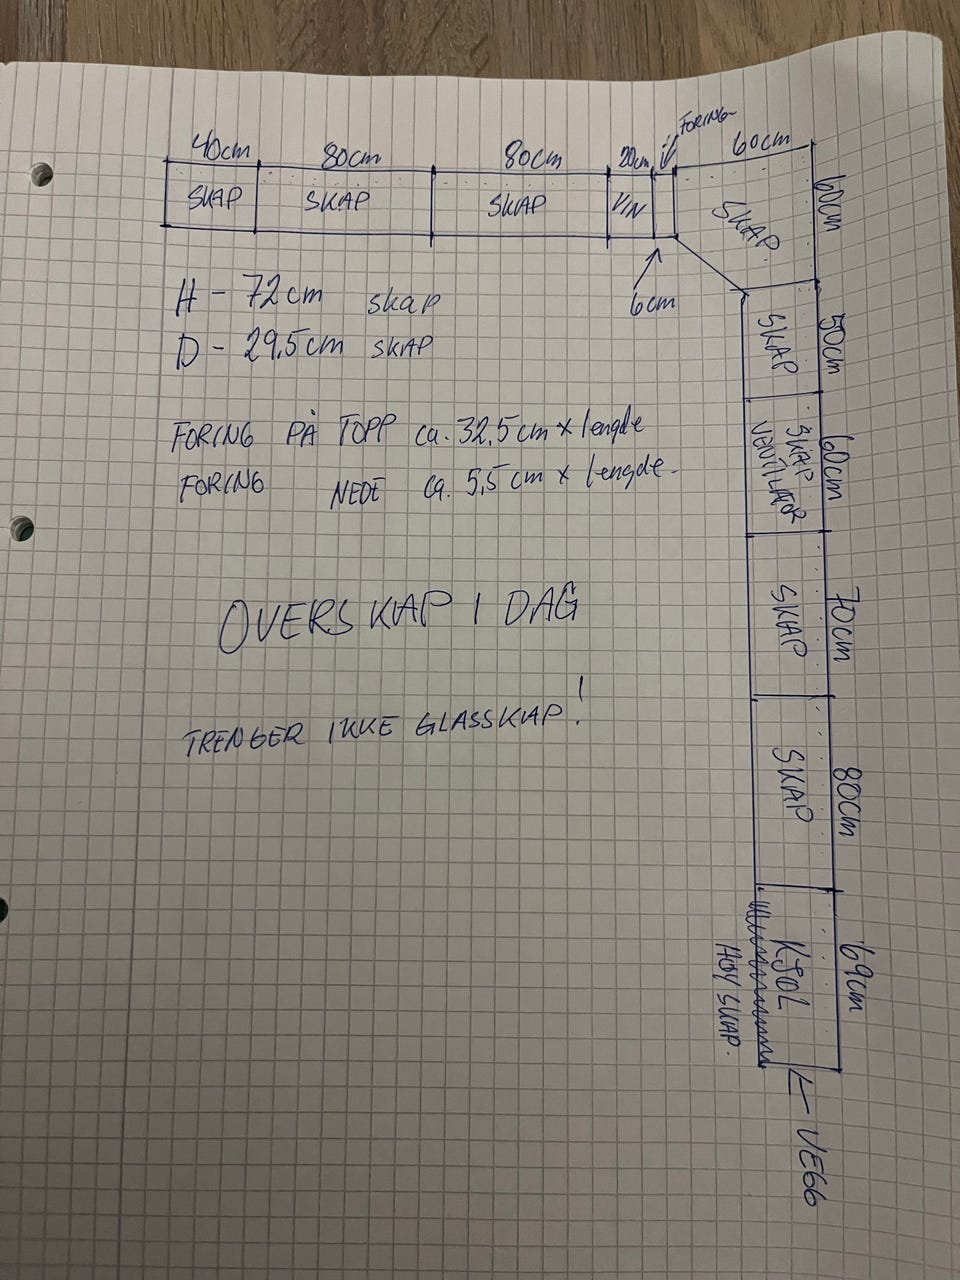 FORING
40cm 80cm 80cm 20cm 60cm
SKAP SKAP SKAP VIN SKAP 60cm
6cm
H - 72cm skap
D - 29,5cm SKAP
SKAP 50cm
FORING PÅ TOPP ca. 32,5cm x lengde
FORING NEDE ca. 5,5cm x lengde.
SKAP VENTILATOR 60cm
OVERSKAP I DAG
SKAP 70cm
TRENGER IKKE GLASSKAP!
SKAP 80cm
KJØL 69cm
HØYSKAP.
← VEGG